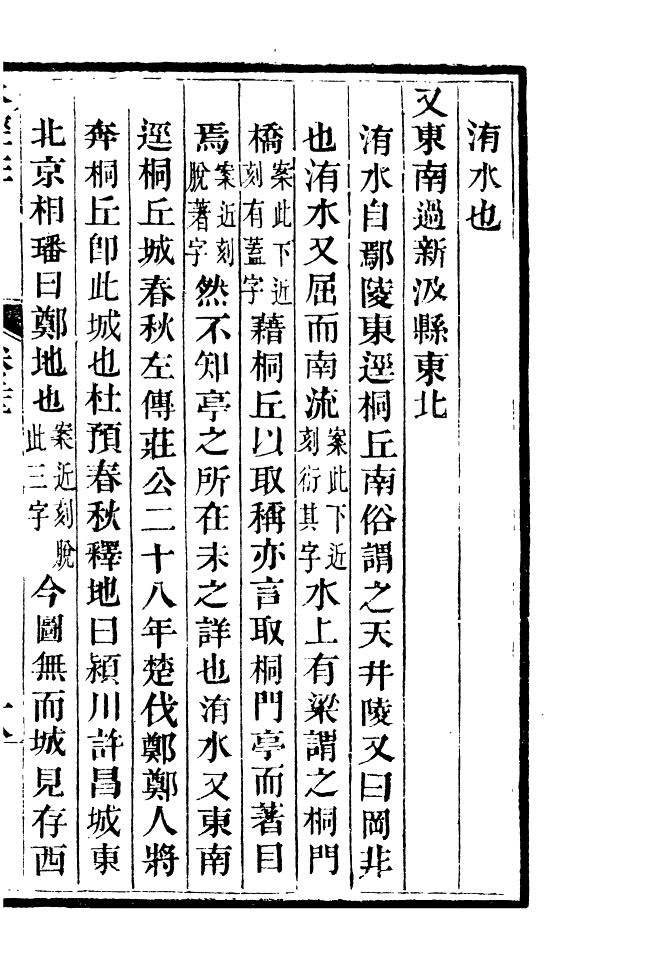 洧水也
又東南過新汲縣東北
洧水自鄢陵東逕桐丘南俗謂之天井陵又曰岡非
也洧水又屈而南流案此下近刻衍其字水上有梁謂之桐門
橋案此下近刻有蓋字藉桐丘以取稱亦言取桐門亭而著目
焉案近刻脫著字然不知亭之所在未之詳也洧水又東南
逕桐丘城春秋左傳莊公二十八年楚伐鄭鄭人將
奔桐丘卽此城也杜預春秋釋地曰潁川許昌城東
北京相璠曰鄭地也案近刻脫此三字今圖無而城見存西